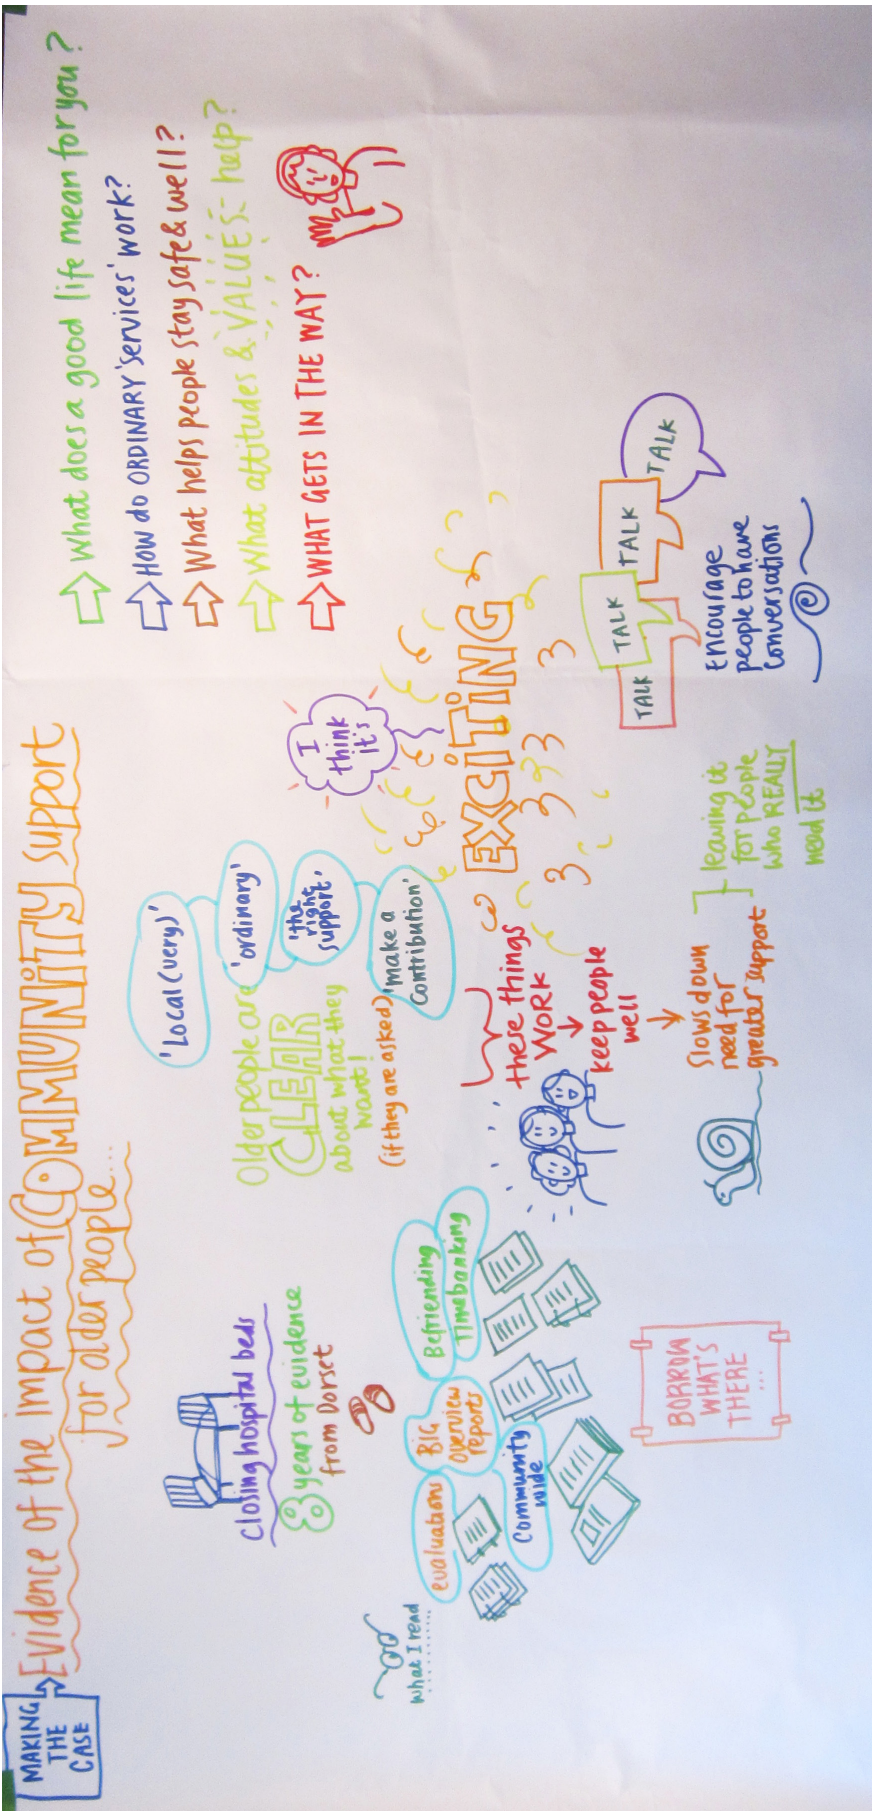 MAKING
THE
CASE
Evidence of the Impact of COMMUNITY support
for older people...
closing hospital beds
8 years of evidence
from Dorset
what I read
evaluations
BIG
overview
reports
Community
wide
Befriending
Timebanking
BORROW
WHAT'S
THERE
...
Older people are
CLEAR
about what they
want!
(if they are asked)
'Local (very)'
'ordinary'
'the
right
support'
'make a
contribution'
these things
WORK
keep people
well
slows down
need for
greater support
leaving it
for people
who REALLY
need it
I
think
it's
EXCITING
TALK
TALK
TALK
TALK
Encourage
people to have
conversations
What does a good life mean for you?
How do ORDINARY 'services' work?
What helps people stay safe & well?
What attitudes & VALUES help?
WHAT GETS IN THE WAY?